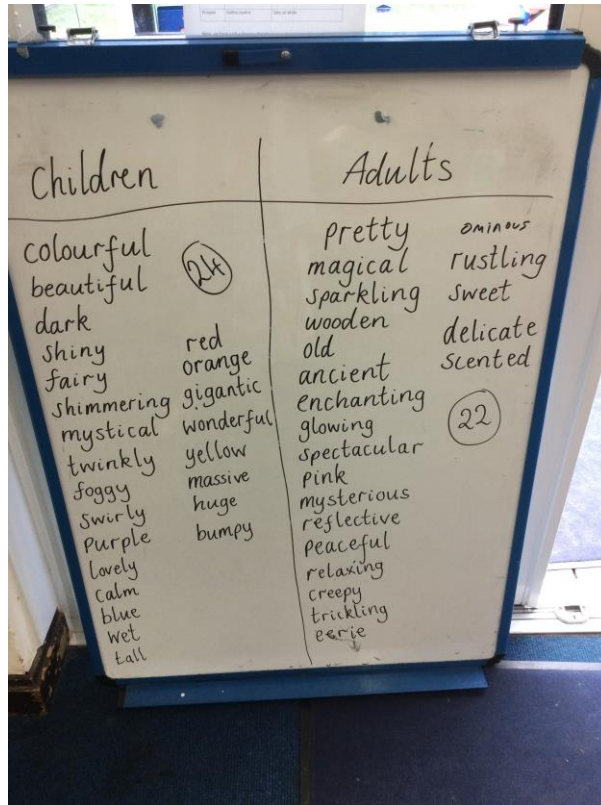 Children
colourful
beautiful
dark
shiny
fairy
shimmering
mystical
twinkly
foggy
swirly
purple
lovely
calm
blue
wet
tall
24
red
orange
gigantic
wonderful
yellow
massive
huge
bumpy
Adults
pretty
magical
sparkling
wooden
old
ancient
enchanting
glowing
spectacular
pink
mysterious
reflective
peaceful
relaxing
creepy
trickling
eerie
ominous
rustling
sweet
delicate
scented
22